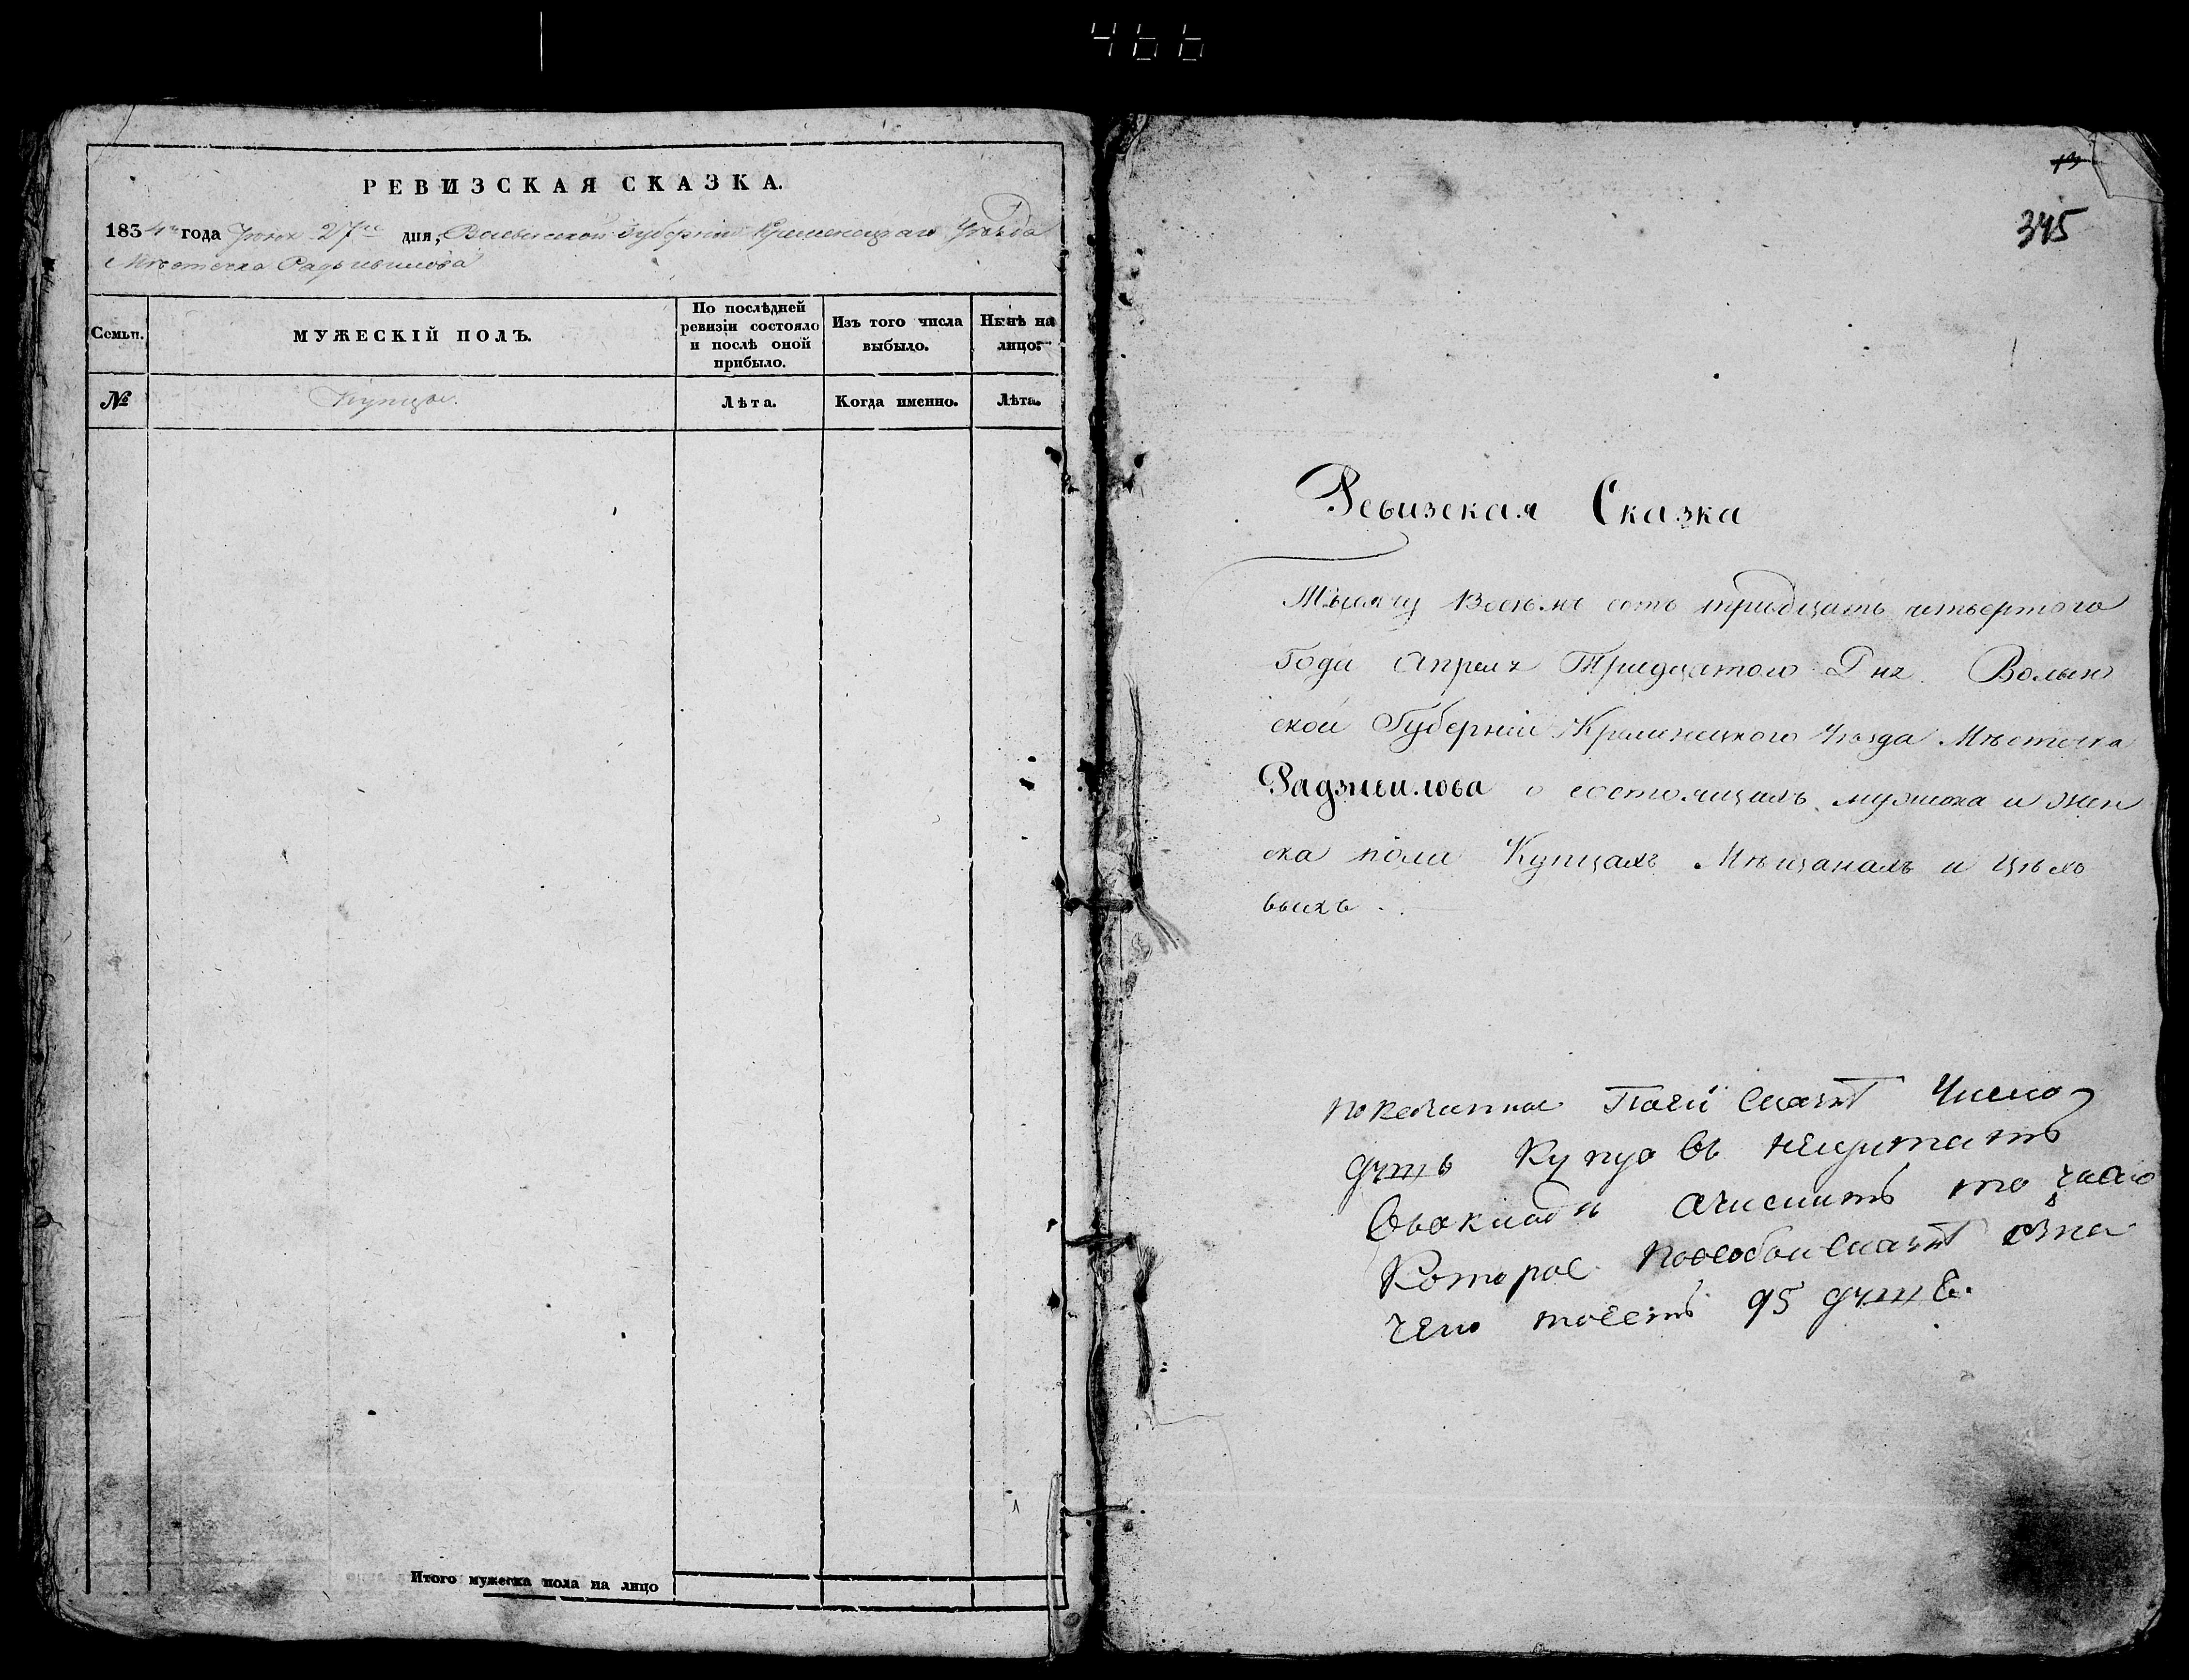 466
РЕВИЗСКАЯ СКАЗКА.
1834 года Іюня 27 дня, Волынской Губерніи Кременецкаго Уѣзда
Мѣстечка Радзивилова
Семьи.
МУЖЕСКІЙ ПОЛЪ.
По послѣдней ревизіи состояло и послѣ оной прибыло.
Изъ того числа выбыло.
Нынѣ на лицо.
№
Купцы.
Лѣта.
Когда именно.
Лѣта.
1
Итого мужеска пола на лицо
345
Ревизская Сказка
Тысячу Восемь сотъ тридцать четвертого
Года Апреля Тридцатого Дня. Волын
ской Губерніи Кременецкого Уѣзда Мѣстечка
Радзивилова о состоящихъ мужска и жен
ска пола Купцахъ Мѣщанахъ и Цѣхо
выхъ.
Число
душъ Купцовъ
то число
Которое
95 душъ.